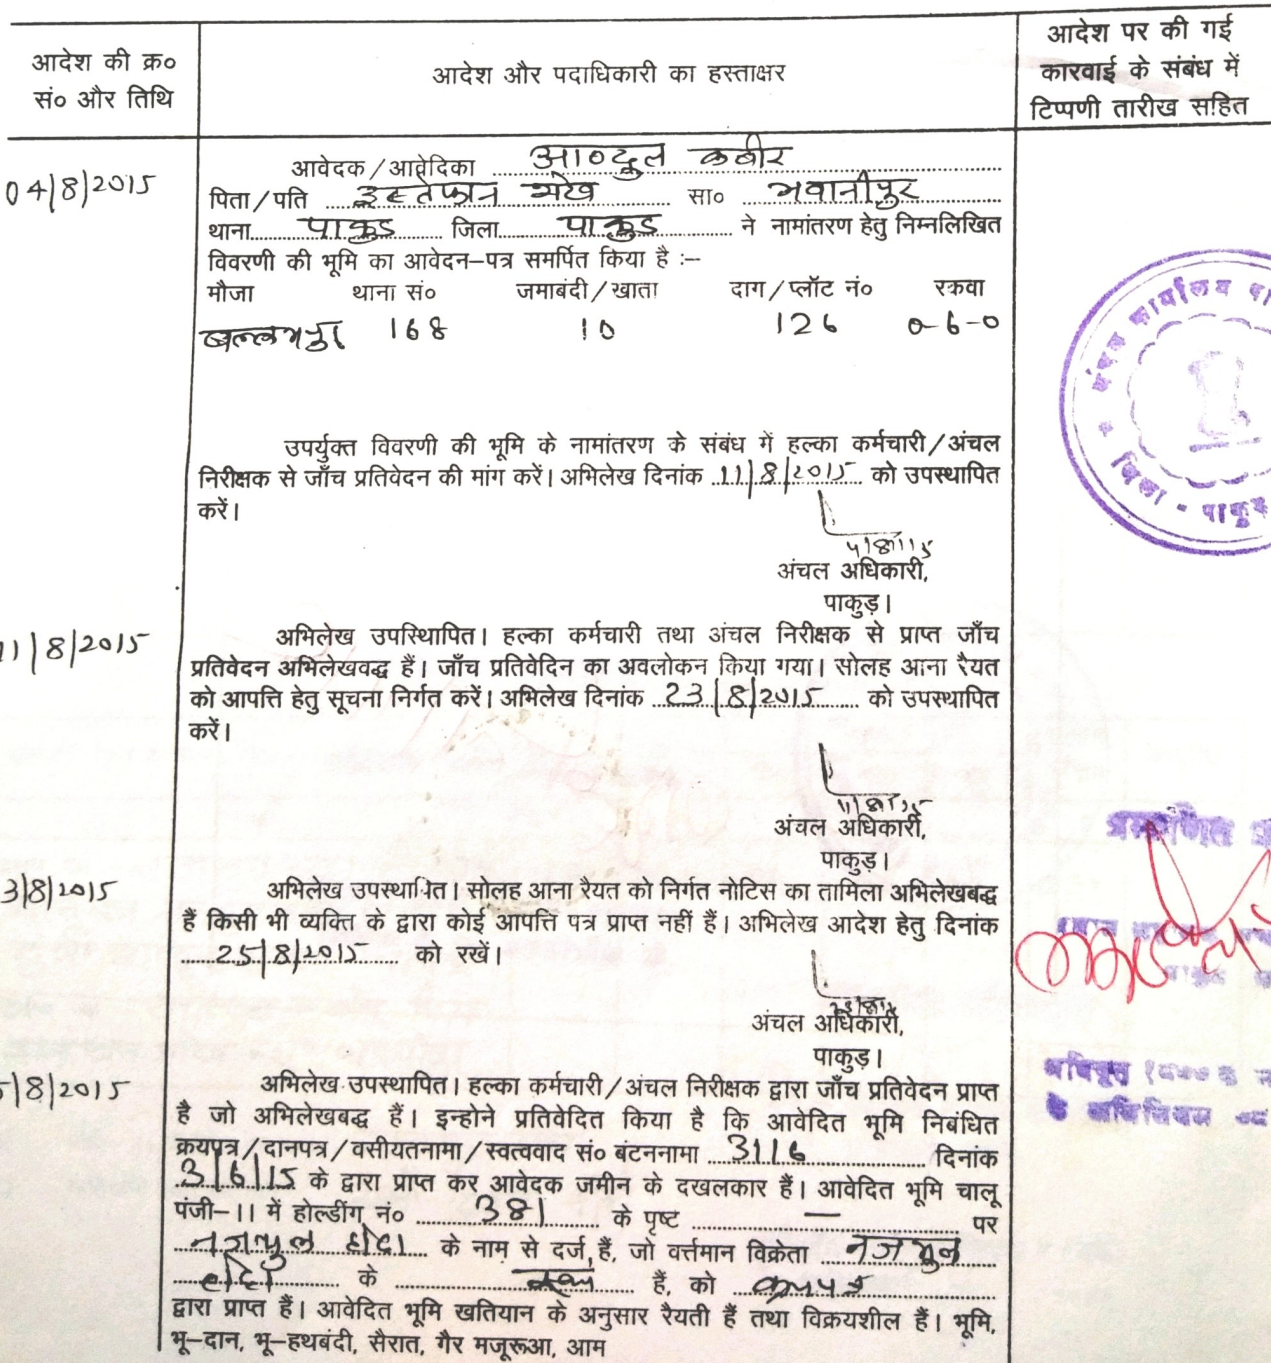 आदेश की क्र०
सं० और तिथि
आदेश और पदाधिकारी का हस्ताक्षर
आदेश पर की गई
कारवाई के संबंध में
टिप्पणी तारीख सहित
04/8/2015
आवेदक/आवेदिका आब्दुल कबीर
पिता/पति शेख सा० भवानीपुर
थाना पाकुड जिला पाकुड ने नामांतरण हेतु निम्नलिखित
विवरणी की भूमि का आवेदन–पत्र समर्पित किया है :–
मौजा थाना सं० जमाबंदी/खाता दाग/प्लॉट नं० रकवा
168 10 126 0-6-0
उपर्युक्त विवरणी की भूमि के नामांतरण के संबंध में हल्का कर्मचारी/अंचल
निरीक्षक से जाँच प्रतिवेदन की मांग करें। अभिलेख दिनांक 11/8/2015 को उपस्थापित
करें।
4/8/15
अंचल अधिकारी,
पाकुड़।
11/8/2015
अभिलेख उपस्थिापित। हल्का कर्मचारी तथा अंचल निरीक्षक से प्राप्त जाँच
प्रतिवेदन अभिलेखबद्ध हैं। जाँच प्रतिवेदिन का अवलोकन किया गया। सोलह आना रैयत
को आपत्ति हेतु सूचना निर्गत करें। अभिलेख दिनांक 23/8/2015 को उपस्थापित
करें।
11/8/15
अंचल अधिकारी,
पाकुड़।
3/8/2015
अभिलेख उपस्थापित। सोलह आना रैयत को निर्गत नोटिस का तामिला अभिलेखबद्ध
हैं किसी भी व्यक्ति के द्वारा कोई आपत्ति पत्र प्राप्त नहीं हैं। अभिलेख आदेश हेतु दिनांक
25/8/2015 को रखें।
अंचल अधिकारी,
पाकुड़।
5/8/2015
अभिलेख उपस्थापित। हल्का कर्मचारी/अंचल निरीक्षक द्वारा जाँच प्रतिवेदन प्राप्त
है जो अभिलेखबद्ध हैं। इन्होने प्रतिवेदित किया है कि आवेदित भूमि निबंधित
क्रयपत्र/दानपत्र/वसीयतनामा/स्वत्ववाद सं० बंटननामा 3116 दिनांक
3/6/15 के द्वारा प्राप्त कर आवेदक जमीन के दखलकार हैं। आवेदित भूमि चालू
पंजी–11 में होल्डींग नं० 381 के पृष्ट — पर
के नाम से दर्ज हैं, जो वर्त्तमान विक्रेता
के हैं, को
द्वारा प्राप्त हैं। आवेदित भूमि खतियान के अनुसार रैयती हैं तथा विक्रयशील हैं। भूमि,
भू–दान, भू–हथबंदी, सैरात, गैर मजूरूआ, आम